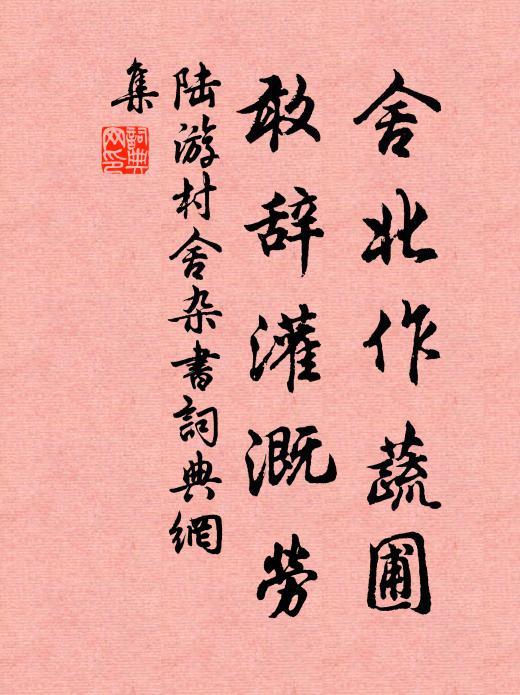 舍北作蔬圃
敢辞灌溉劳
陆游村舍杂書詞典網
集
詞典
网印